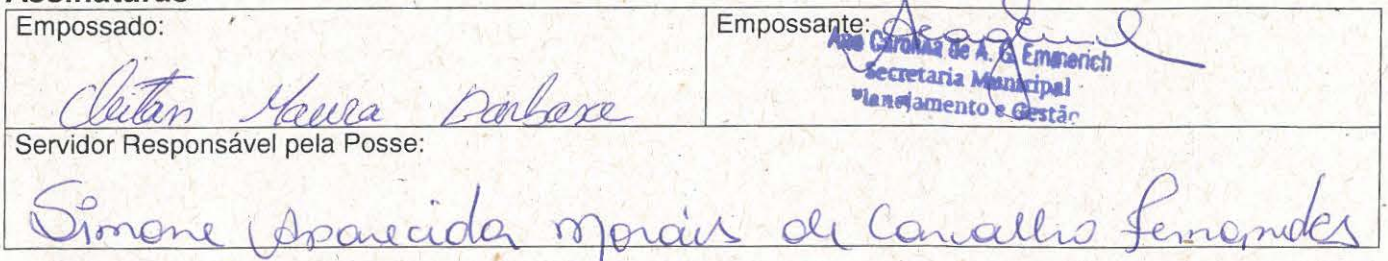 Assinaturas
Empossado:
Cleitan Moura Barbosa
Empossante:
Ana Carolina de A. G. Emmerich
Secretaria Municipal
Planejamento e Gestão
Servidor Responsável pela Posse:
Simone Aparecida Morais de Carvalho Fernandes